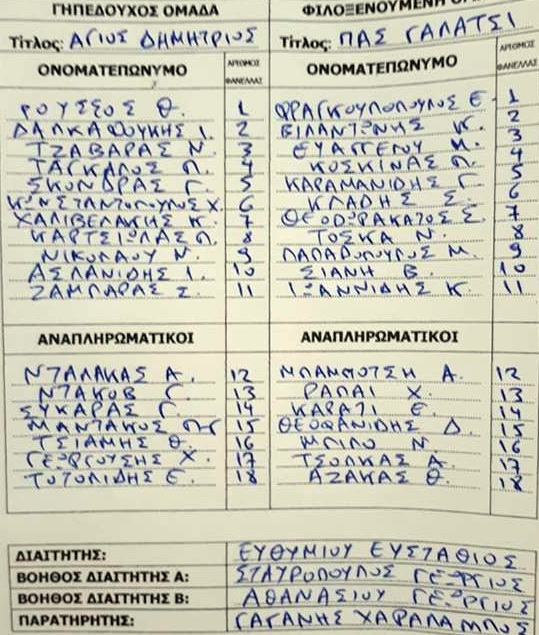 ΓΗΠΕΔΟΥΧΟΣ ΟΜΑΔΑ
ΦΙΛΟΞΕΝΟΥΜΕΝΗ
Τίτλος: ΑΓΙΟΣ ΔΗΜΗΤΡΙΟΣ
Τίτλος: ΠΑΣ ΓΑΛΑΤΣΙ
ΟΝΟΜΑΤΕΠΩΝΥΜΟ ΑΡΙΘΜΟΣ ΦΑΝΕΛΛΑΣ
ΟΝΟΜΑΤΕΠΩΝΥΜΟ ΑΡΙΘΜΟΣ ΦΑΝΕΛΛΑΣ
ΡΟΥΣΣΟΣ Θ. 1
ΔΑΛΚΑΦΟΥΚΗΣ Ι. 2
ΤΖΑΒΑΡΑΣ Ν. 3
ΤΑΓΚΑΛΟΣ Π. 4
ΣΚΟΝΔΡΑΣ Γ. 5
ΚΩΝΣΤΑΝΤΟΠΟΥΛΟΣ Χ. 6
ΧΑΛΙΒΕΛΑΚΗΣ Κ. 7
ΚΑΡΤΣΙΩΛΑΣ Π. 8
ΝΙΚΟΛΑΟΥ Ν. 9
ΑΣΛΑΝΙΔΗΣ Ι. 10
ΖΑΜΠΑΡΑΣ Σ. 11
ΦΡΑΓΚΟΥΛΟΠΟΥΛΟΣ Ε. 1
ΒΙΛΑΝΤΩΝΗΣ Κ. 2
ΕΥΑΓΓΕΛΟΥ Μ. 3
ΚΟΣΚΙΝΑΣ Π. 4
ΚΑΡΑΜΑΝΙΔΗΣ Γ. 5
ΚΛΑΔΗΣ Σ. 6
ΘΕΟΔΩΡΑΚΑΤΟΣ Σ. 7
ΤΟΣΚΑ Ν. 8
ΠΑΠΑΔΟΠΟΥΛΟΣ Μ. 9
ΣΙΑΝΗ Β. 10
ΙΩΑΝΝΙΔΗΣ Κ. 11
ΑΝΑΠΛΗΡΩΜΑΤΙΚΟΙ
ΑΝΑΠΛΗΡΩΜΑΤΙΚΟΙ
ΝΤΑΛΑΚΑΣ Α. 12
ΝΤΑΚΟΒ Γ. 13
ΣΥΚΑΡΑΣ Γ. 14
ΜΑΝΤΑΚΟΣ 15
ΤΣΙΑΜΗΣ Θ. 16
ΓΕΩΡΓΟΥΣΗΣ Χ. 17
ΤΟΤΟΛΙΔΗΣ Ε. 18
ΜΠΑΜΠΟΤΣΗ Α. 12
ΡΑΠΑΙ Χ. 13
ΚΑΡΑΤΙ Ε. 14
ΘΕΟΦΑΝΙΔΗΣ Δ. 15
ΜΠΙΛΟ Ν. 16
ΤΣΟΛΚΑΣ Α. 17
ΑΖΑΚΑΣ Θ. 18
ΔΙΑΙΤΗΤΗΣ: ΕΥΘΥΜΙΟΥ ΕΥΣΤΑΘΙΟΣ
ΒΟΗΘΟΣ ΔΙΑΙΤΗΤΗΣ Α: ΣΤΑΥΡΟΠΟΥΛΟΣ ΓΕΩΡΓΙΟΣ
ΒΟΗΘΟΣ ΔΙΑΙΤΗΤΗΣ Β: ΑΘΑΝΑΣΙΟΥ ΓΕΩΡΓΙΟΣ
ΠΑΡΑΤΗΡΗΤΗΣ: ΓΑΓΑΝΗΣ ΧΑΡΑΛΑΜΠΟΣ